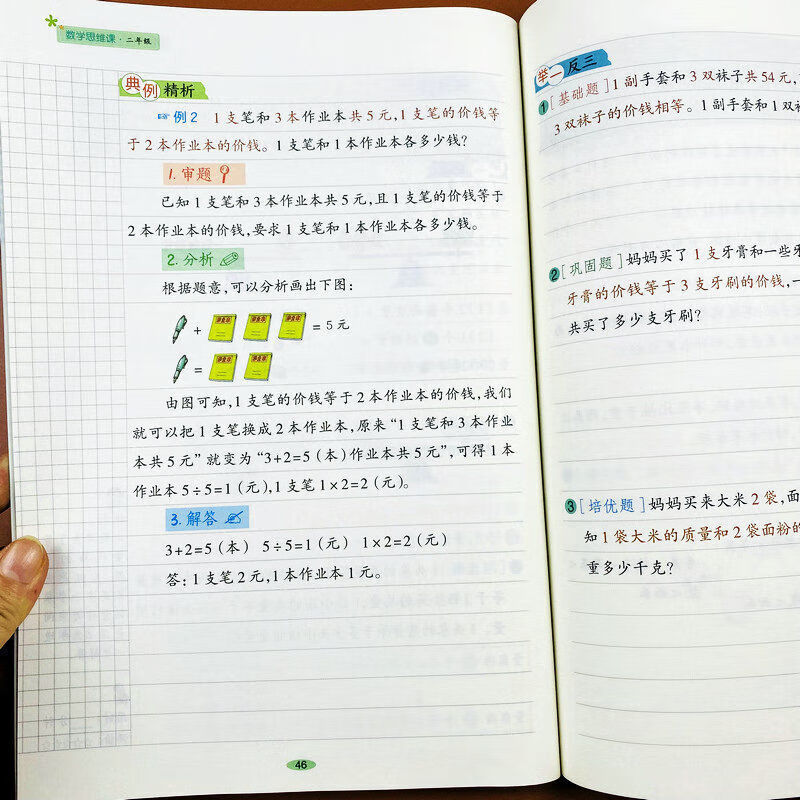 数学思维课·二年级
典例 精析
例2 1支笔和3本作业本共5元,1支笔的价钱等
于2本作业本的价钱。1支笔和1本作业本各多少钱?
1.审题
已知1支笔和3本作业本共5元,且1支笔的价钱等于
2本作业本的价钱,要求1支笔和1本作业本各多少钱。
2.分析
根据题意,可以分析画出下图:
+ = 5元
=
由图可知,1支笔的价钱等于2本作业本的价钱,我们
就可以把1支笔换成2本作业本,原来“1支笔和3本作业
本共5元”就变为“3+2=5(本)作业本共5元”,可得1本
作业本5÷5=1(元),1支笔1×2=2(元)。
3.解答
3+2=5(本) 5÷5=1(元) 1×2=2(元)
答:1支笔2元,1本作业本1元。
46
举一反三
1[基础题]1副手套和3双袜子共54元,
3双袜子的价钱相等。1副手套和1双袜
2[巩固题]妈妈买了1支牙膏和一些牙
牙膏的价钱等于3支牙刷的价钱,一
共买了多少支牙刷?
3[培优题]妈妈买来大米2袋,面
知1袋大米的质量和2袋面粉的
重多少千克?